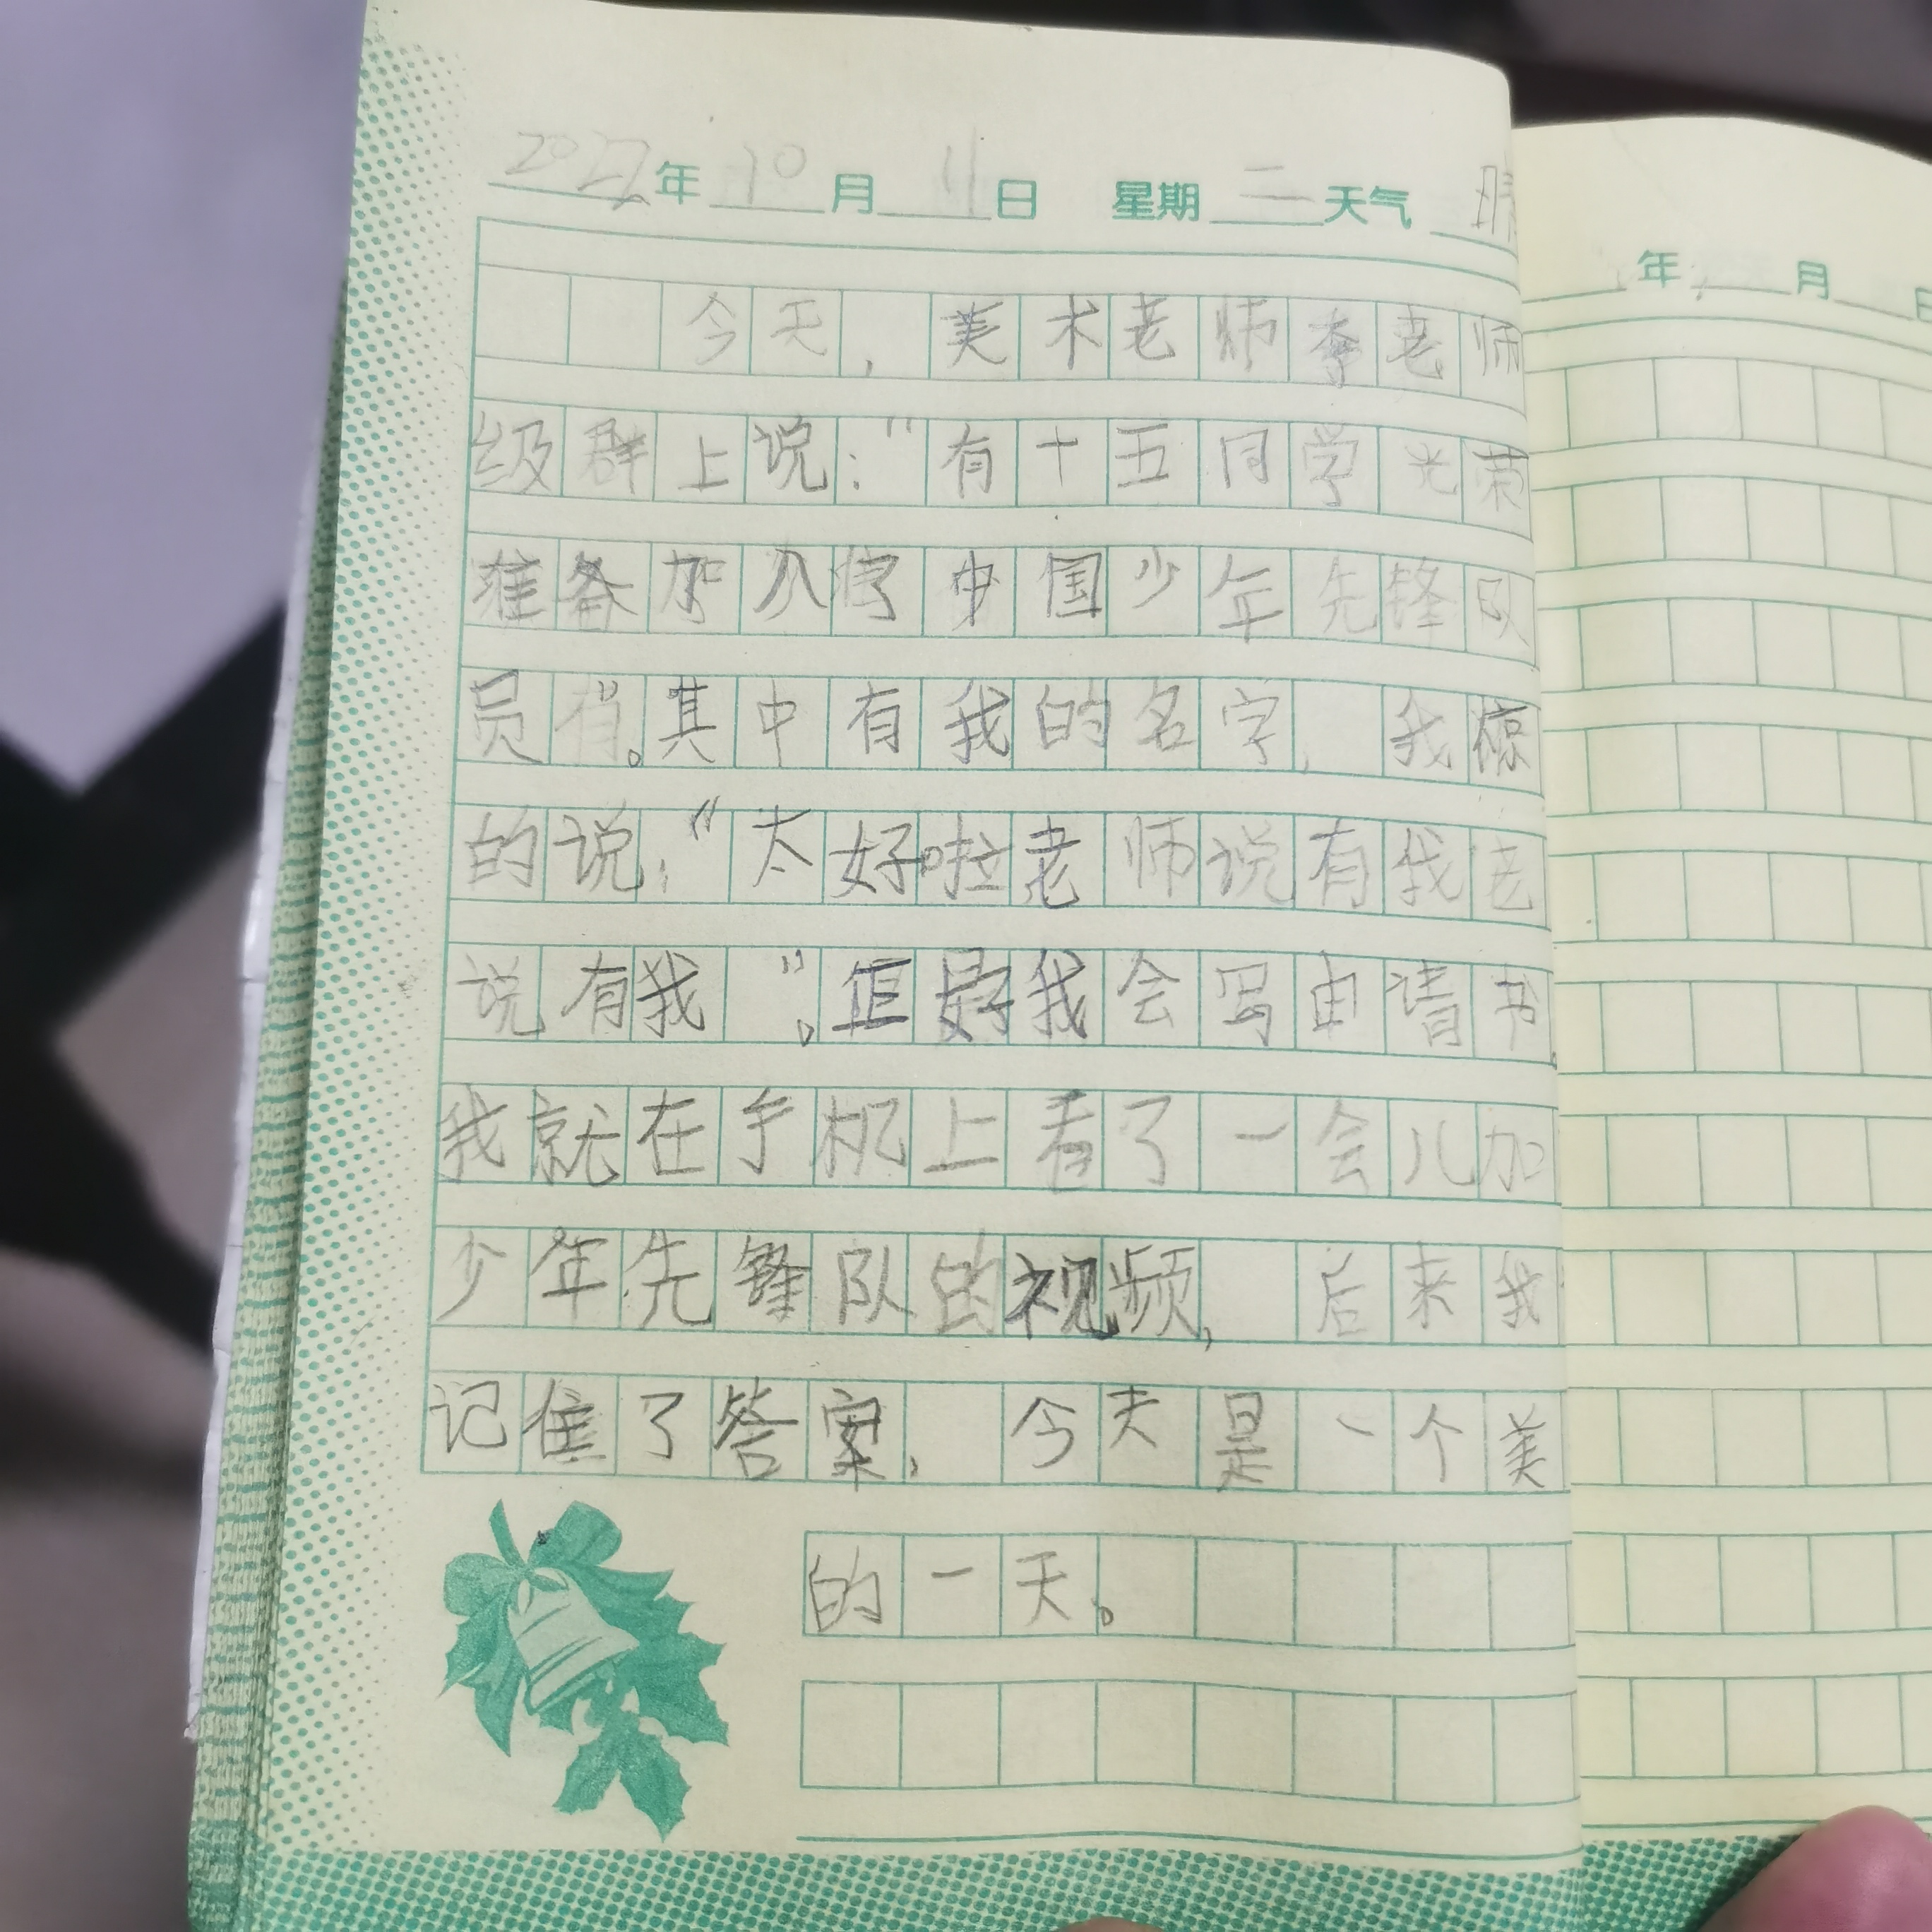 2022年10月11日 星期二天气 晴
今天，美术老师李老师
级群上说：“有十五同学光荣
准备加入了中国少年先锋队
员有”。其中有我的名字，我惊
的说：“太好啦老师说有我老
说有我”。正好我会写由请书。
我就在手机上看了一会儿加
少年先锋队的视频，后来我
记住了答案，今天是一个美
的一天。
年 月 日